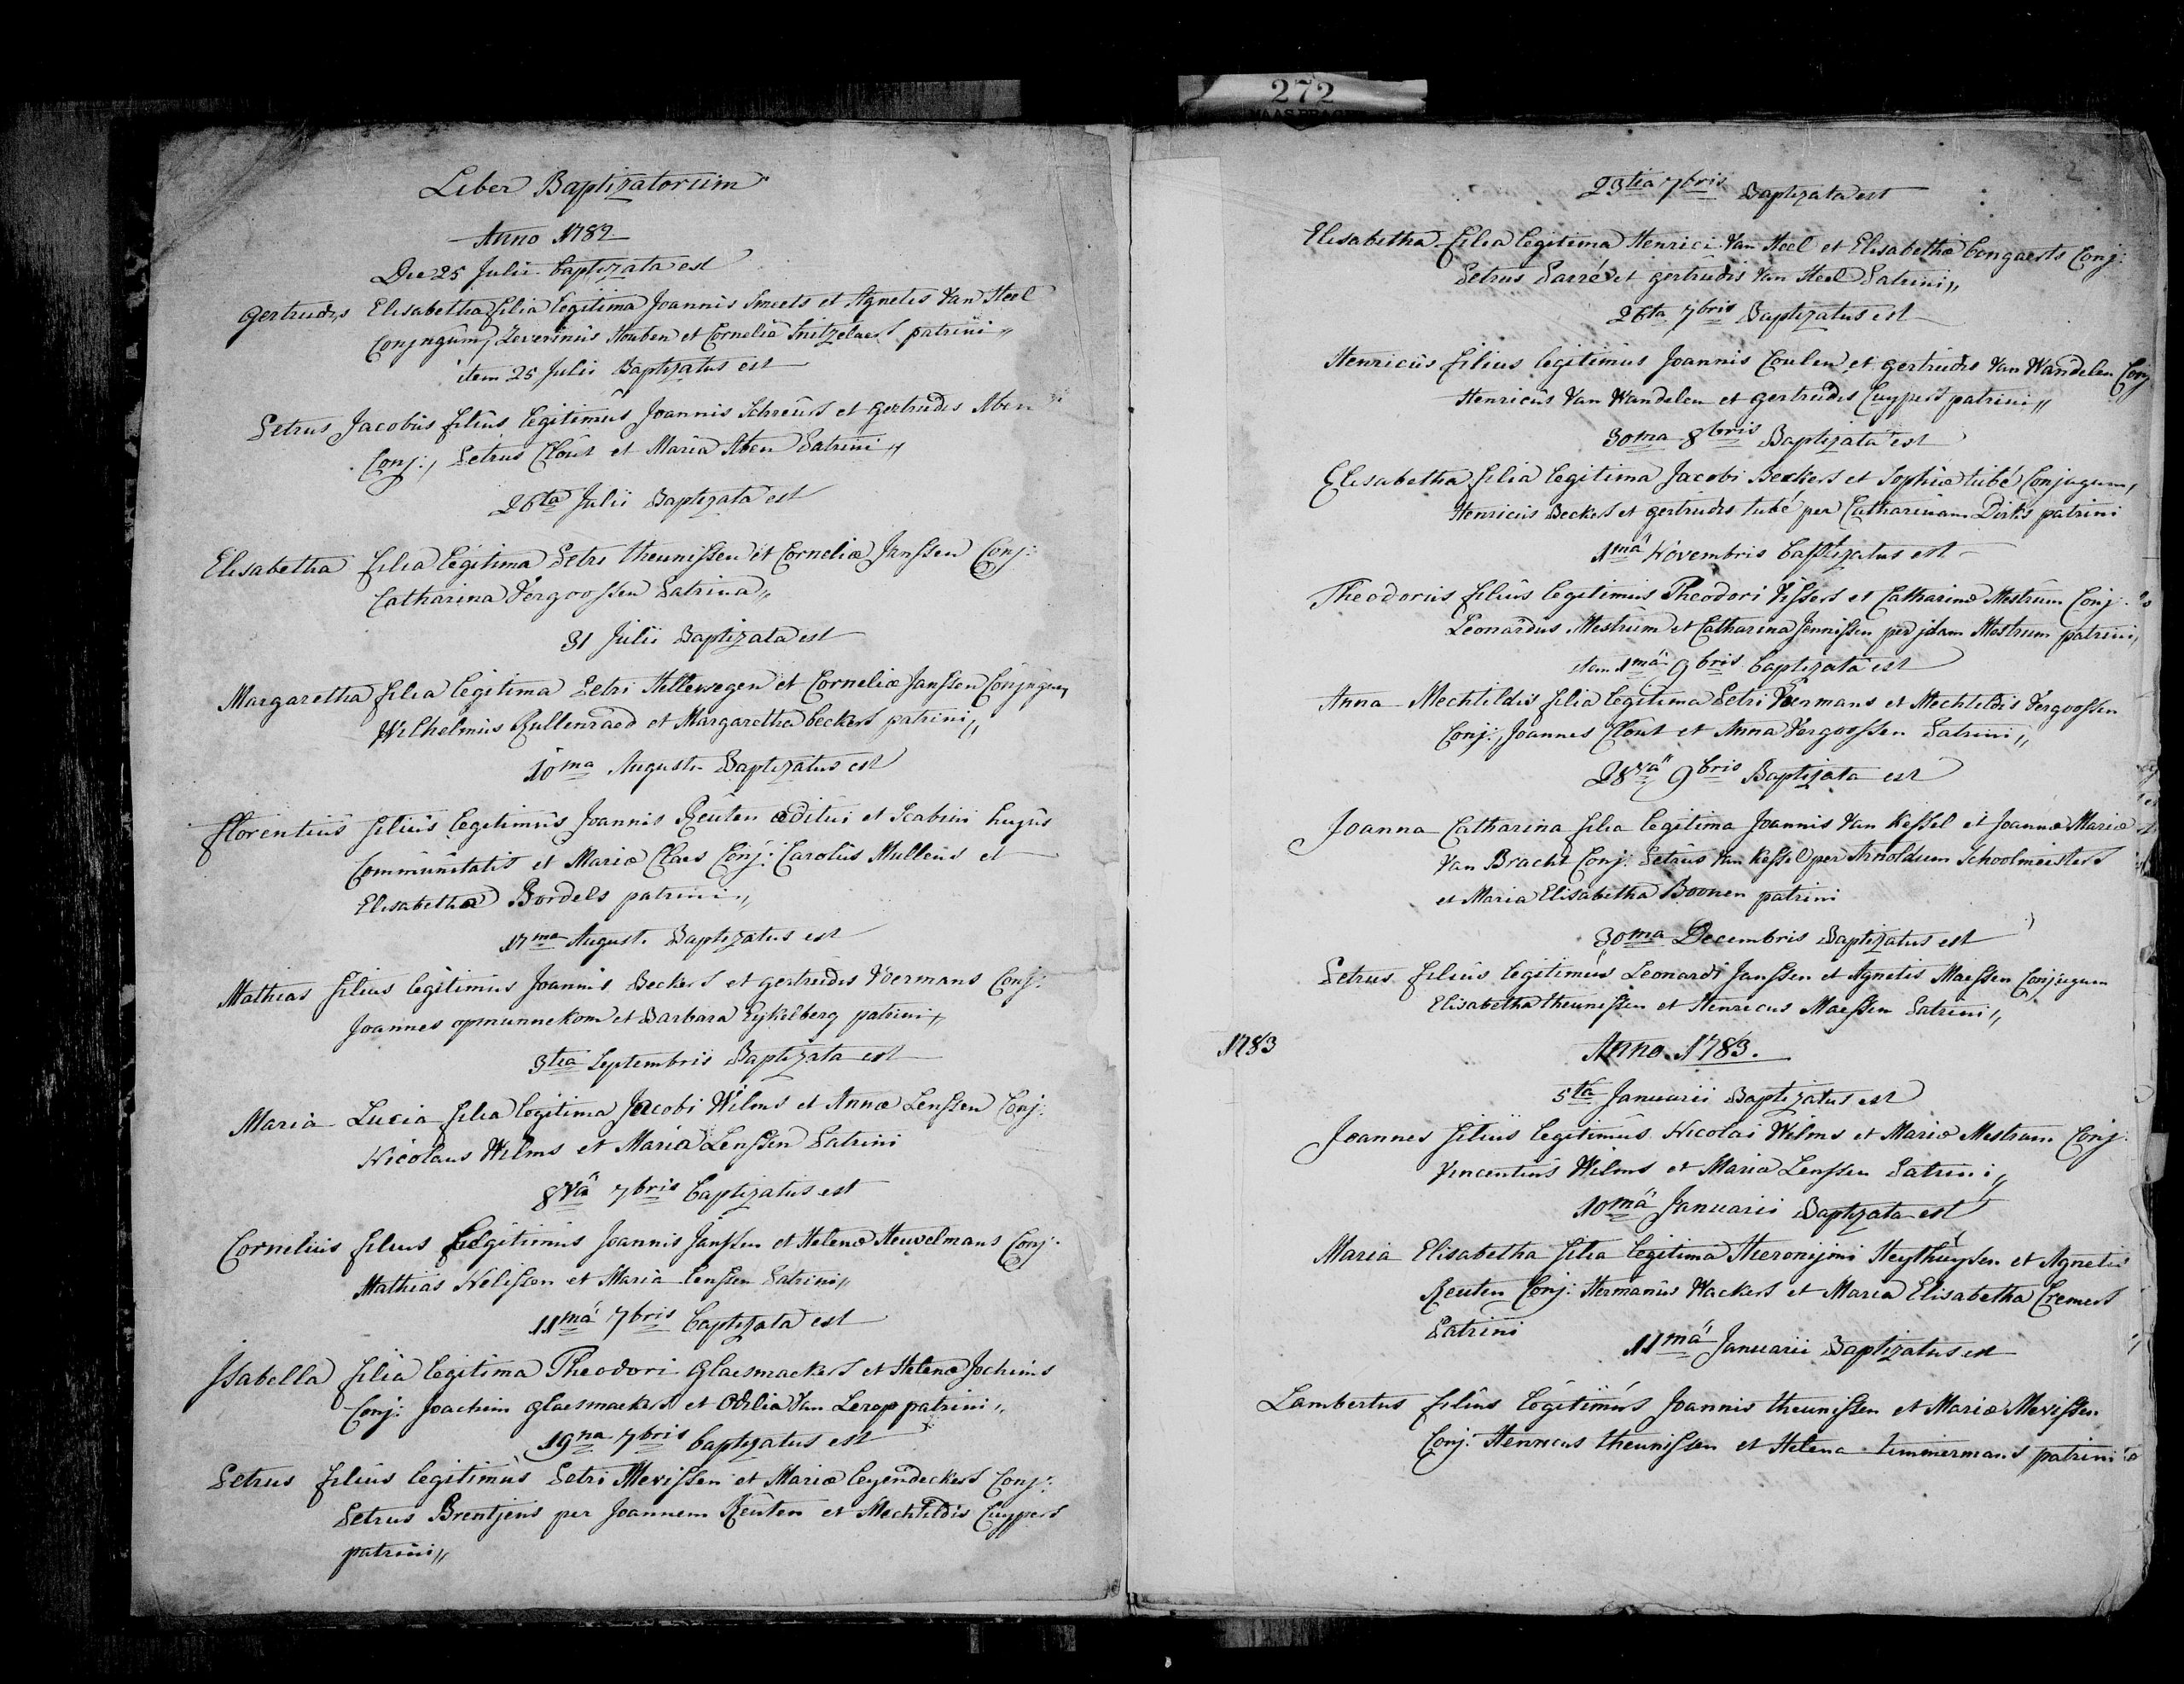 272
Liber Baptizatorum
Anno 1782
Die 25 Julii baptizata est
Gertrudis Elisabetha filia legitima Joannis Smeets et Agnetis Van Heel
Conjugum, Zeverinus Houben et Cornelia Snitzelaers patrini
item 25 Julii Baptizatus est
Petrus Jacobus filius legitimus Joannis Schreurs et gertrudis Aben
Conj:, Petrus Clout et Maria Aben Patrini
26ta Julii Baptizata est
Elisabetha filia legitima Petri theunissen et Corneliæ Janssen Conj:
Catharina Vergoossen Patrina
31 Julii Baptizata est
Margaretha filia legitima Petri Hellewegen et Corneliæ Janssen Conjugum
Wilhelmus Rullenraed et Margaretha beckers patrini
10ma Augusti Baptizatus est
Florentius filius legitimus Joannis Reuten æditui et Scabini hujus
Communitatis et Mariæ Claes Conj: Carolus Mullens et
Elisabetha Bordels patrini
17ma August. Baptizatus est
Mathias filius legitimus Joannis Beckers et gertrudis Voermans Conj:
Joannes opmunnekom et Barbara Eykelberg patrini
3tia Septembris Baptizata est
Maria Lucia filia legitima Jacobi Wilms et Annæ Lenssen Conj:
Nicolaus Wilms et Maria Lenssen Patrini
8va 7bris baptizatus est
Cornelius filius legitimus Joannis Janssen et Helenæ Heuvelmans Conj:
Mathias Nelissen et Maria Lenssen Patrini
11ma 7bris baptizata est
Isabella filia legitima Theodori Glaesmackers et Helenæ Jochims
Conj: Joachim glaesmackers et Odilia Van Lerop patrini
19na 7bris baptizatus est
Petrus filius legitimus Petri Mevissen et Mariæ leyendeckers Conj:
Petrus Brentjens per Joannem Reuten et Mechtildis Cuypers
patrini
2
23tia 7bris Baptizata est
Elisabetha filia legitima Henrici Van Heel et Elisabethæ bongaerts Conj:
Petrus Parré et gertrudis Van Heel Patrini
26ta 7bris Baptizatus est
Henricus filius legitimus Joannis Coulen et gertrudis Van Wandelen Conj
Henricus Van Wandelen et gertrudis Cuypers patrini
30ma 8bris Baptizata est
Elisabetha filia legitima Jacobi Beckers et Sophiæ tubé Conjugum,
Henricus Beckers et gertrudis tubé per Catharinam Dirks patrini
1ma Novembris baptizatus est
Theodorus filius legitimus Theodori Vissers et Catharinæ Mestrum Conj:
Leonardus Mestrum et Catharina Jennissen per idam Mestrum patrini
item 1ma 9bris baptizata est
Anna Mechtildis filia legitima Petri Voermans et Mechtildis Vergoossen
Conj:, Joannes Clout et Anna Vergoossen Patrini
28va 9bris Baptizata est
Joanna Catharina filia legitima Joannis Van Kessel et Joannæ Mariæ
Van Bracht Conj: Petrus Van Kessel per Arnoldum Schoolmeesters
et Maria Elisabetha Boonen patrini
30ma Decembris Baptizatus est
Petrus filius legitimus Leonardi Janssen et Agnetis Maessen Conjugum
Elisabetha theunissen et Henricus Maessen Patrini
1783 Anno 1783.
5ta Januarii Baptizatus est
Joannes filius legitimus Nicolai Wilms et Mariæ Mestrum Conj:
Vincentius Wilms et Maria Lenssen Patrini
10ma Januarii Baptizata est
Maria Elisabetha filia legitima Hieronijmi Heythuysen et Agnetis
Reuten Conj: Hermanus Wackers et Maria Elisabetha Cremers
Patrini
11ma Januarii Baptizatus est
Lambertus filius legitimus Joannis theunissen et Mariæ Mevissen
Conj: Henricus theunissen et Helena timmermans patrini